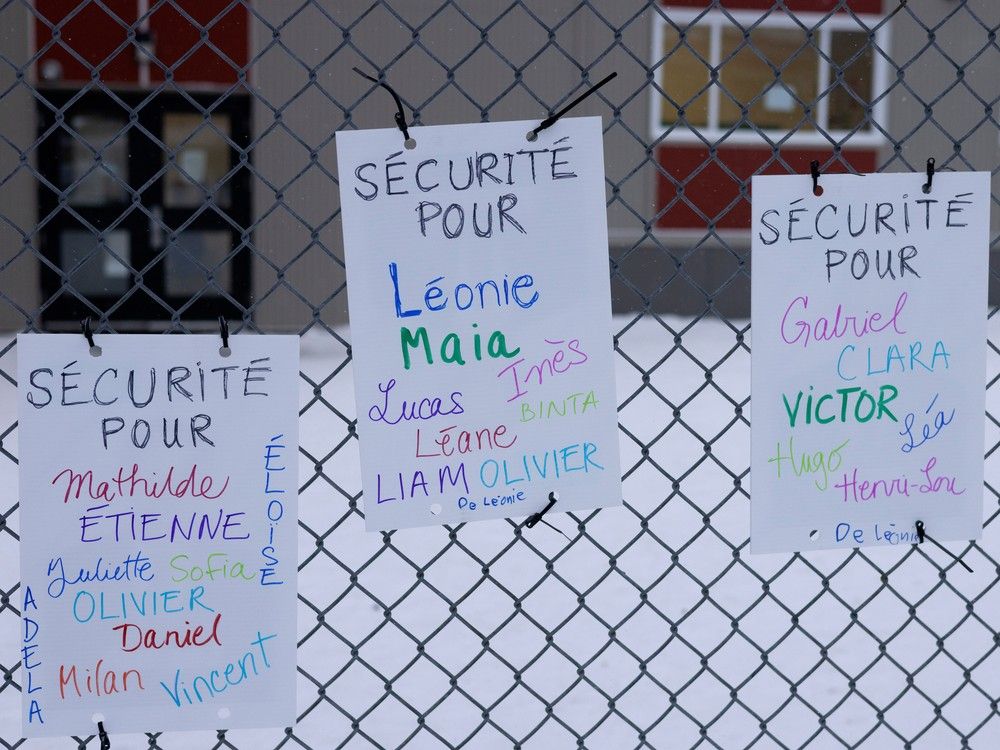 SÉCURITÉ
POUR
Mathilde
ÉTIENNE
ÉLOÏSE
Juliette Sofia
OLIVIER
ADELA
Daniel
Milan Vincent
SÉCURITÉ
POUR
Léonie
Maia
Inès
Lucas BINTA
Léane
LIAM OLIVIER
De Léonie
SÉCURITÉ
POUR
Gabriel
CLARA
VICTOR
Léa
Hugo
Henri-Lou
De Léonie